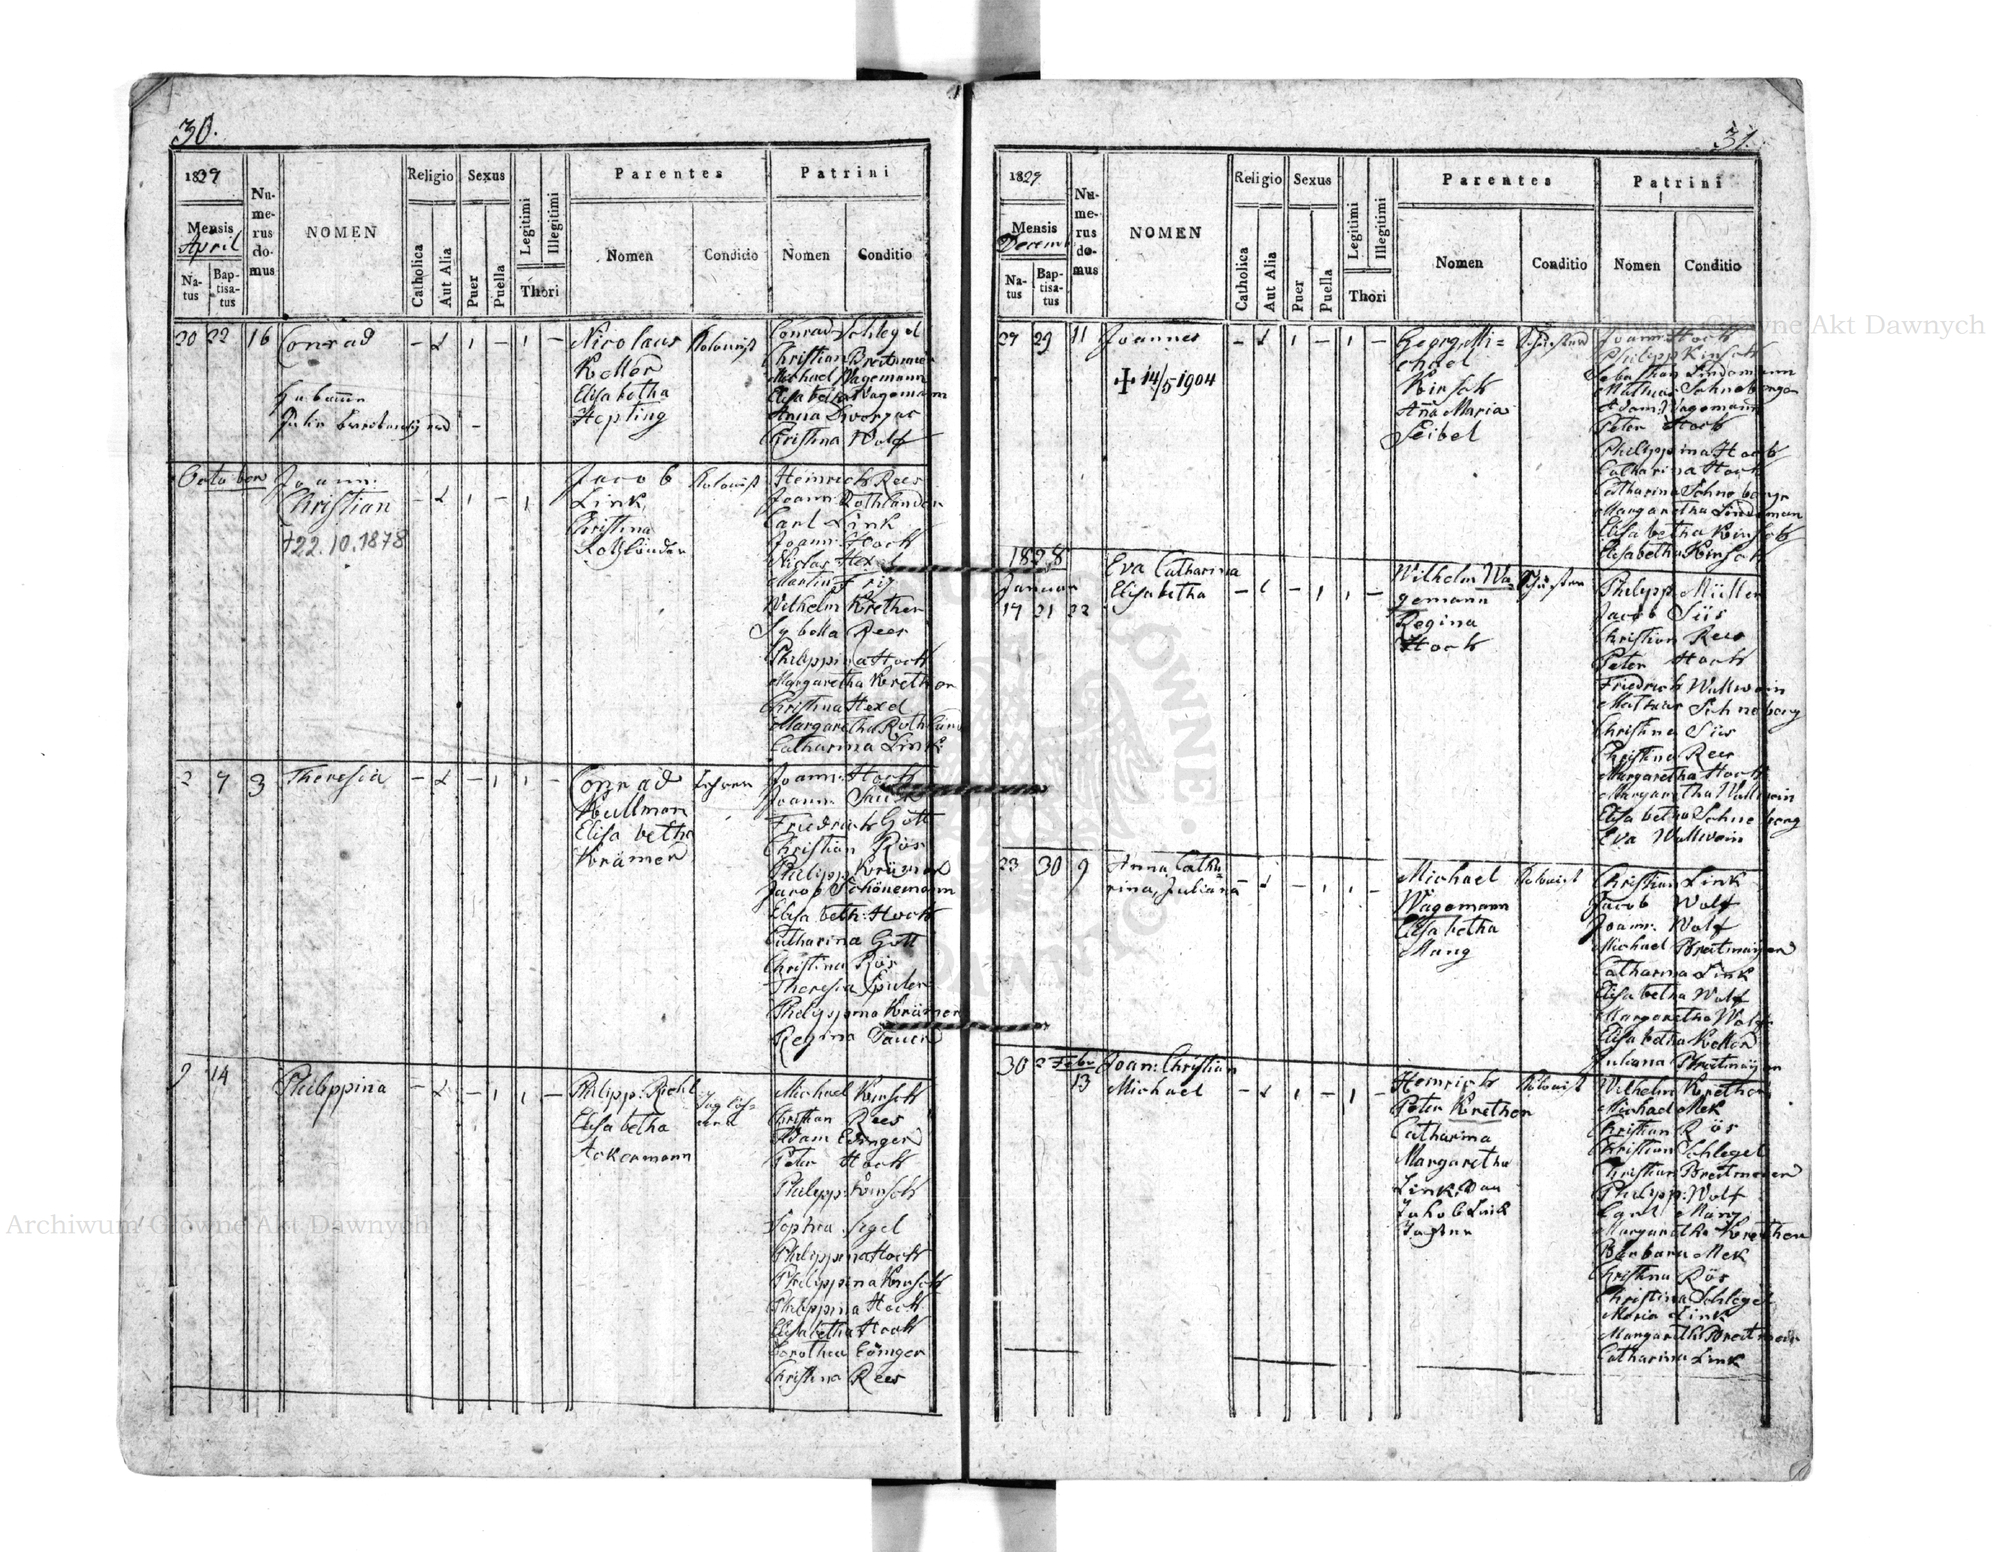 30.
1829
Mensis
April
Na-
tus
Bap-
tisa-
tus
Nu-
me-
rus
do-
mus
NOMEN
Religio
Catholica
Aut Alia
Sexus
Puer
Puella
Legitimi
Illegitimi
Thori
Parentes
Nomen
Condicio
Patrini
Nomen
Conditio
20 22 16 Conrad
Nicolaus
Keller
Elisabetha
Hepting
Kolonist
Conrad Schlegel
Christian Breitmeier
Michael Wagemann
Elisabetha Wagemann
Anna
Christina Wolf
October
Joann:
Christian
+22.10.1878
Jacob
Link
Christina
Rothländer
Kolonist
Heinrich Rees
Joann: Rothländer
Carl Link
Joann: Hock
Niclas Hexel
Martin
Wilhelm Krether
Sybella Rees
Philippina Hock
Margaretha Krether
Christina Hexel
Margaretha
Catharina Link
2 7 3 Theresia
Conrad
Kullman
Elisabetha
Krämer
Lehrer
Joann: Hock
Joann:
Friedrich Gött
Christian Rös
Philipp Krämer
Jacob Schönemann
Elisabeth: Hock
Catharina Gött
Christina Rös
Theresia
Philippina Krämer
Regina
9 14 Philippina
Philipp:
Elisabetha
Ackermann
Michael Kirsch
Christian Rees
Adam Edinger
Peter Hock
Philipp: Kirsch
Sophia
Philippina Hock
Philippina Kirsch
Philippina Hock
Elisabetha Hock
Dorothea Edinger
Christina Rees
31.
1829.
Mensis
Decemb
Na-
tus
Bap-
tisa-
tus
Nu-
me-
rus
do-
mus
NOMEN
Religio
Catholica
Aut Alia
Sexus
Puer
Puella
Legitimi
Illegitimi
Thori
Parentes
Nomen
Conditio
Patrini
Nomen
Conditio
27 29 11 Joannes
+ 14/5 1904
Georg Mi=
chael
Kirsch
Anna Maria
Seibel
Joann: Hock
Philipp Kirsch
Sebasthan Lindemann
Mathias Schneberger
Adam Wagemann
Peter Hock
Philippina Hock
Catharina Hock
Catharina Schneberger
Margaretha Lindeman
Elisabetha Kirsch
Elisabetha Kirsch
1828
Januar
17 21 22
Eva Catharina
Elisabetha
Wilhelm Wa=
gemann
Regina
Hock
Philipp Müller
Jacob Süs
Christian Rees
Peter Hock
Friedrich Wallwein
Mathias Schneberg
Christina Süs
Christina Rees
Margaretha Hock
Margaretha Wallwein
Elisabetha Schneberg
Eva Wallwein
23 30 9 Anna Catha
rina Juliana
Michael
Wagemann
Elisabetha
Mang
Kolonist
Christian Link
Jacob Wolf
Joann: Wolf
Michael Breitmayer
Catharina Link
Elisabetha Wolf
Margaretha Wolf
Elisabetha Keller
Juliana Breitmayer
30 2 Febr 13
Joan: Christian
Michael
Heinrich
Peter Krether
Catharina
Margaretha
Link
Kolonist
Wilhelm Krether
Michael Mek
Christian Rös
Christian Schlegel
Christian Breitmeier
Philipp: Wolf
Carl Mang
Margaretha Krether
Barbara Mek
Christina Rös
Christina Schlegel
Maria Link
Margareth Breitmeier
Catharina Link
Archiwum Główne Akt Dawnych
Archiwum Główne Akt Dawnych